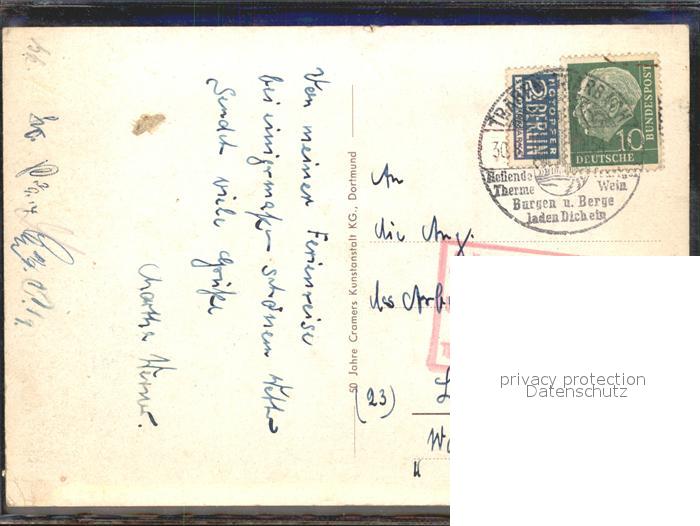 Von meiner Ferienreise
bei einigermaßen schönem Wetter
Sendet viele Grüße
Martha Werner.
50 Jahre Cramers Kunstanstalt KG., Dortmund
NOTOPFER
2 BERLIN
STEUERMARKE
10
DEUTSCHE
BUNDESPOST
30.
Heilende
Therme
Wein
Burgen u. Berge
laden Dich ein
An
die Ang.
des Arb
(23)
privacy protection
Datenschutz